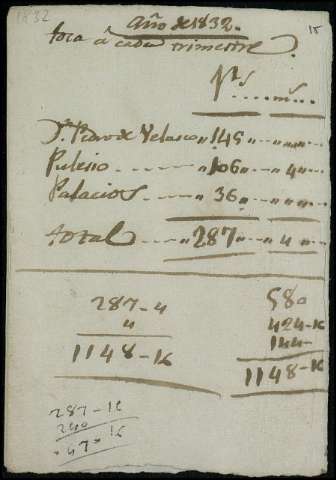 1832
Año de 1832.
toca á cada trimestre.
15
r.s ..... m.s ...
S. Pedro de Velasco " 145 " " ... " ...
Pulesio ..... " 106 " " ... 4 " ...
Palacios ..... " 36 " " ... " ...
total ..... " 287 " " ... 4 " ...
287-4
4
1148-16
580
424-16
144-
1148-16
287-16